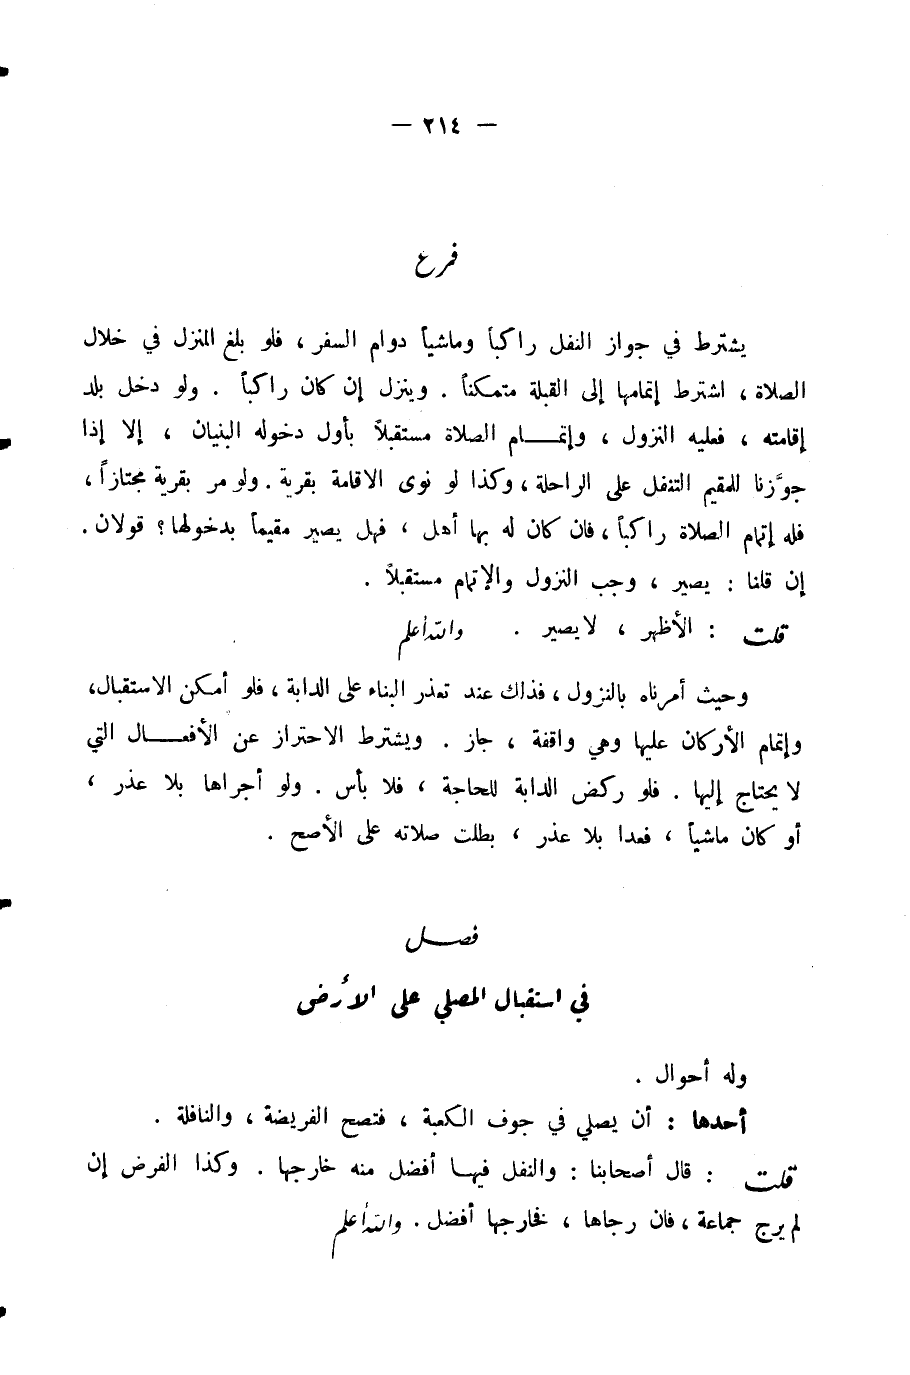 — ٢١٤ —
فرع
يشترط في جواز النفل راكباً وماشياً دوام السفر ، فلو بلغ المنزل في خلال
الصلاة ، اشترط إتمامها إلى القبلة متمكناً . وينزل إن كان راكباً . ولو دخل بلد
إقامته ، فعليه النزول ، وإتمـــام الصلاة مستقبلاً بأول دخوله البنيان ، إلا إذا
جوَّزنا للمقيم التنفل على الراحلة ، وكذا لو نوى الاقامة بقرية . ولو مر بقرية مجتازاً ،
فله إتمام الصلاة راكباً ، فان كان له بها أهل ، فهل يصير مقيماً بدخولها ؟ قولان .
إن قلنا : يصير ، وجب النزول والإتمام مستقبلاً .
قلت : الأظهر ، لا يصير . والله أعلم
وحيث أمرناه بالنزول ، فذلك عند تعذر البناء على الدابة ، فلو أمكن الاستقبال ،
وإتمام الأركان عليها وهي واقفة ، جاز . ويشترط الاحتراز عن الأفعـــال التي
لا يحتاج إليها . فلو ركض الدابة للحاجة ، فلا بأس . ولو أجراها بلا عذر ،
أو كان ماشياً ، فعدا بلا عذر ، بطلت صلاته على الأصح .
فصـــل
في استقبال المصلي على الأرض
وله أحوال .
أحدها : أن يصلي في جوف الكعبة ، فتصح الفريضة ، والنافلة .
قلت : قال أصحابنا : والنفل فيهـا أفضل منه خارجها . وكذا الفرض إن
لم يرج جماعة ، فان رجاها ، فخارجها أفضل . والله أعلم